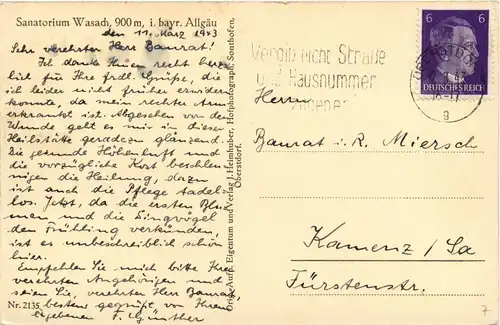 Sanatorium Wasach, 900 m, i. bayr. Allgäu
den 11. März 1943
Sehr verehrter Herr Baurat!
Ich danke Ihnen recht herz-
lich für Ihre frdl. Grüße, die
ich leider nicht früher erwidern
konnte, da mein rechter Arm
erkrankt ist. Abgesehen von der
Wunde geht es mir in dieser
Heilstätte geradezu glänzend.
Die gesunde Höhenluft und
die vorzügliche Kost beschleu-
nigen die Heilung, dazu
ist auch die Pflege tadel-
los. Jetzt, da die ersten Blu-
men und die Singvögel
den Frühling verkünden,
ist es unbeschreiblich schön
hier.
Empfehlen Sie mich bitte Ihren
verehrten Angehörigen und
seien Sie, verehrter Herr Baurat,
bestens gegrüßt von Ihrem
ergebenen F. Günther
Nr. 2135.
Orig. Aufn. Eigentum und Verlag J. Heimhuber, Hofphotograph, Sonthofen,
Oberstdorf.
Vergiß nicht Straße
und Hausnummer
6 6
DEUTSCHES REICH
OBERSTDORF
g
Herrn
Baurat i. R. Miersch
Kamenz / Sa
Fürstenstr.
7